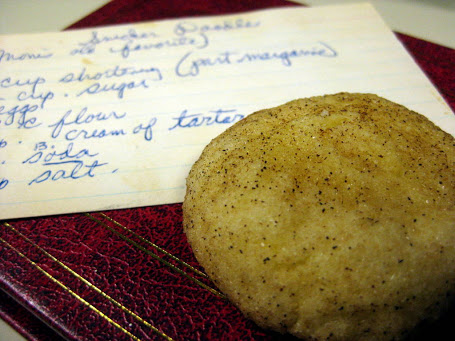 Snicker Doodles
Moni's (favorite)
cup shortening (part margarine)
cup. sugar
eggs
c flour
. cream of tartar
. B. soda
p salt.